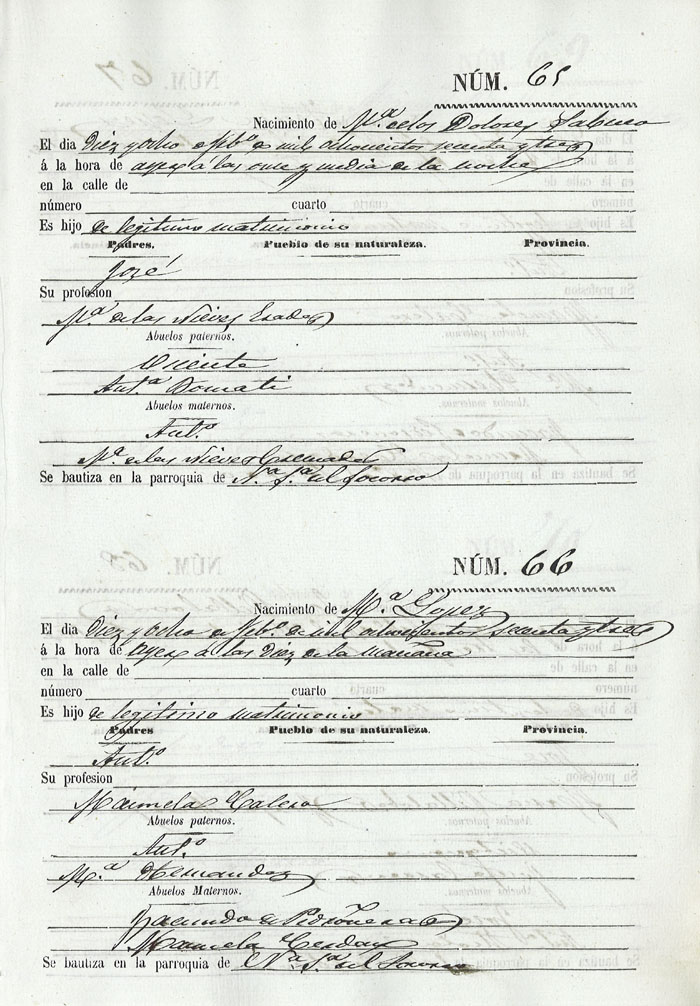 NÚM. 65
Nacimiento de M.ª de los Dolores
El dia Diez y ocho de Feb.º de mil ochocientos sesenta y tres
á la hora de ayer a las once y media de la noche
en la calle de
número cuarto
Es hijo de legitimo matrimonio
Padres. Pueblo de su naturaleza. Provincia.
José
Su profesion
M.ª de las Nieves
Abuelos paternos.
Vicente
Ant.ª Donati
Abuelos maternos.
Ant.º
M.ª de las Nieves
Se bautiza en la parroquia de N.ª S.ª del Socorro
NÚM. 66
Nacimiento de M.ª Lopez
El dia Diez y ocho de Feb.º de mil ochocientos sesenta y tres
á la hora de ayer a las Diez de la mañana
en la calle de
número cuarto
Es hijo de legitimo matrimonio
Padres Pueblo de su naturaleza. Provincia.
Ant.º
Su profesion
Manuela Calero
Abuelos paternos.
Ant.º
M.ª Hernandez
Abuelos Maternos.
Manuela Cerdan
Se bautiza en la parroquia de N.ª S.ª del Socorro